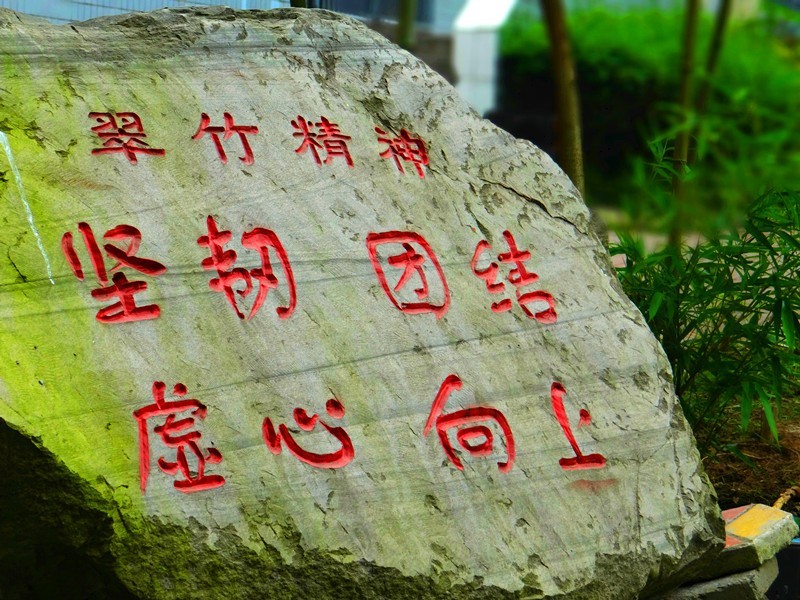 翠竹精神
坚韧 团结
虚心 向上